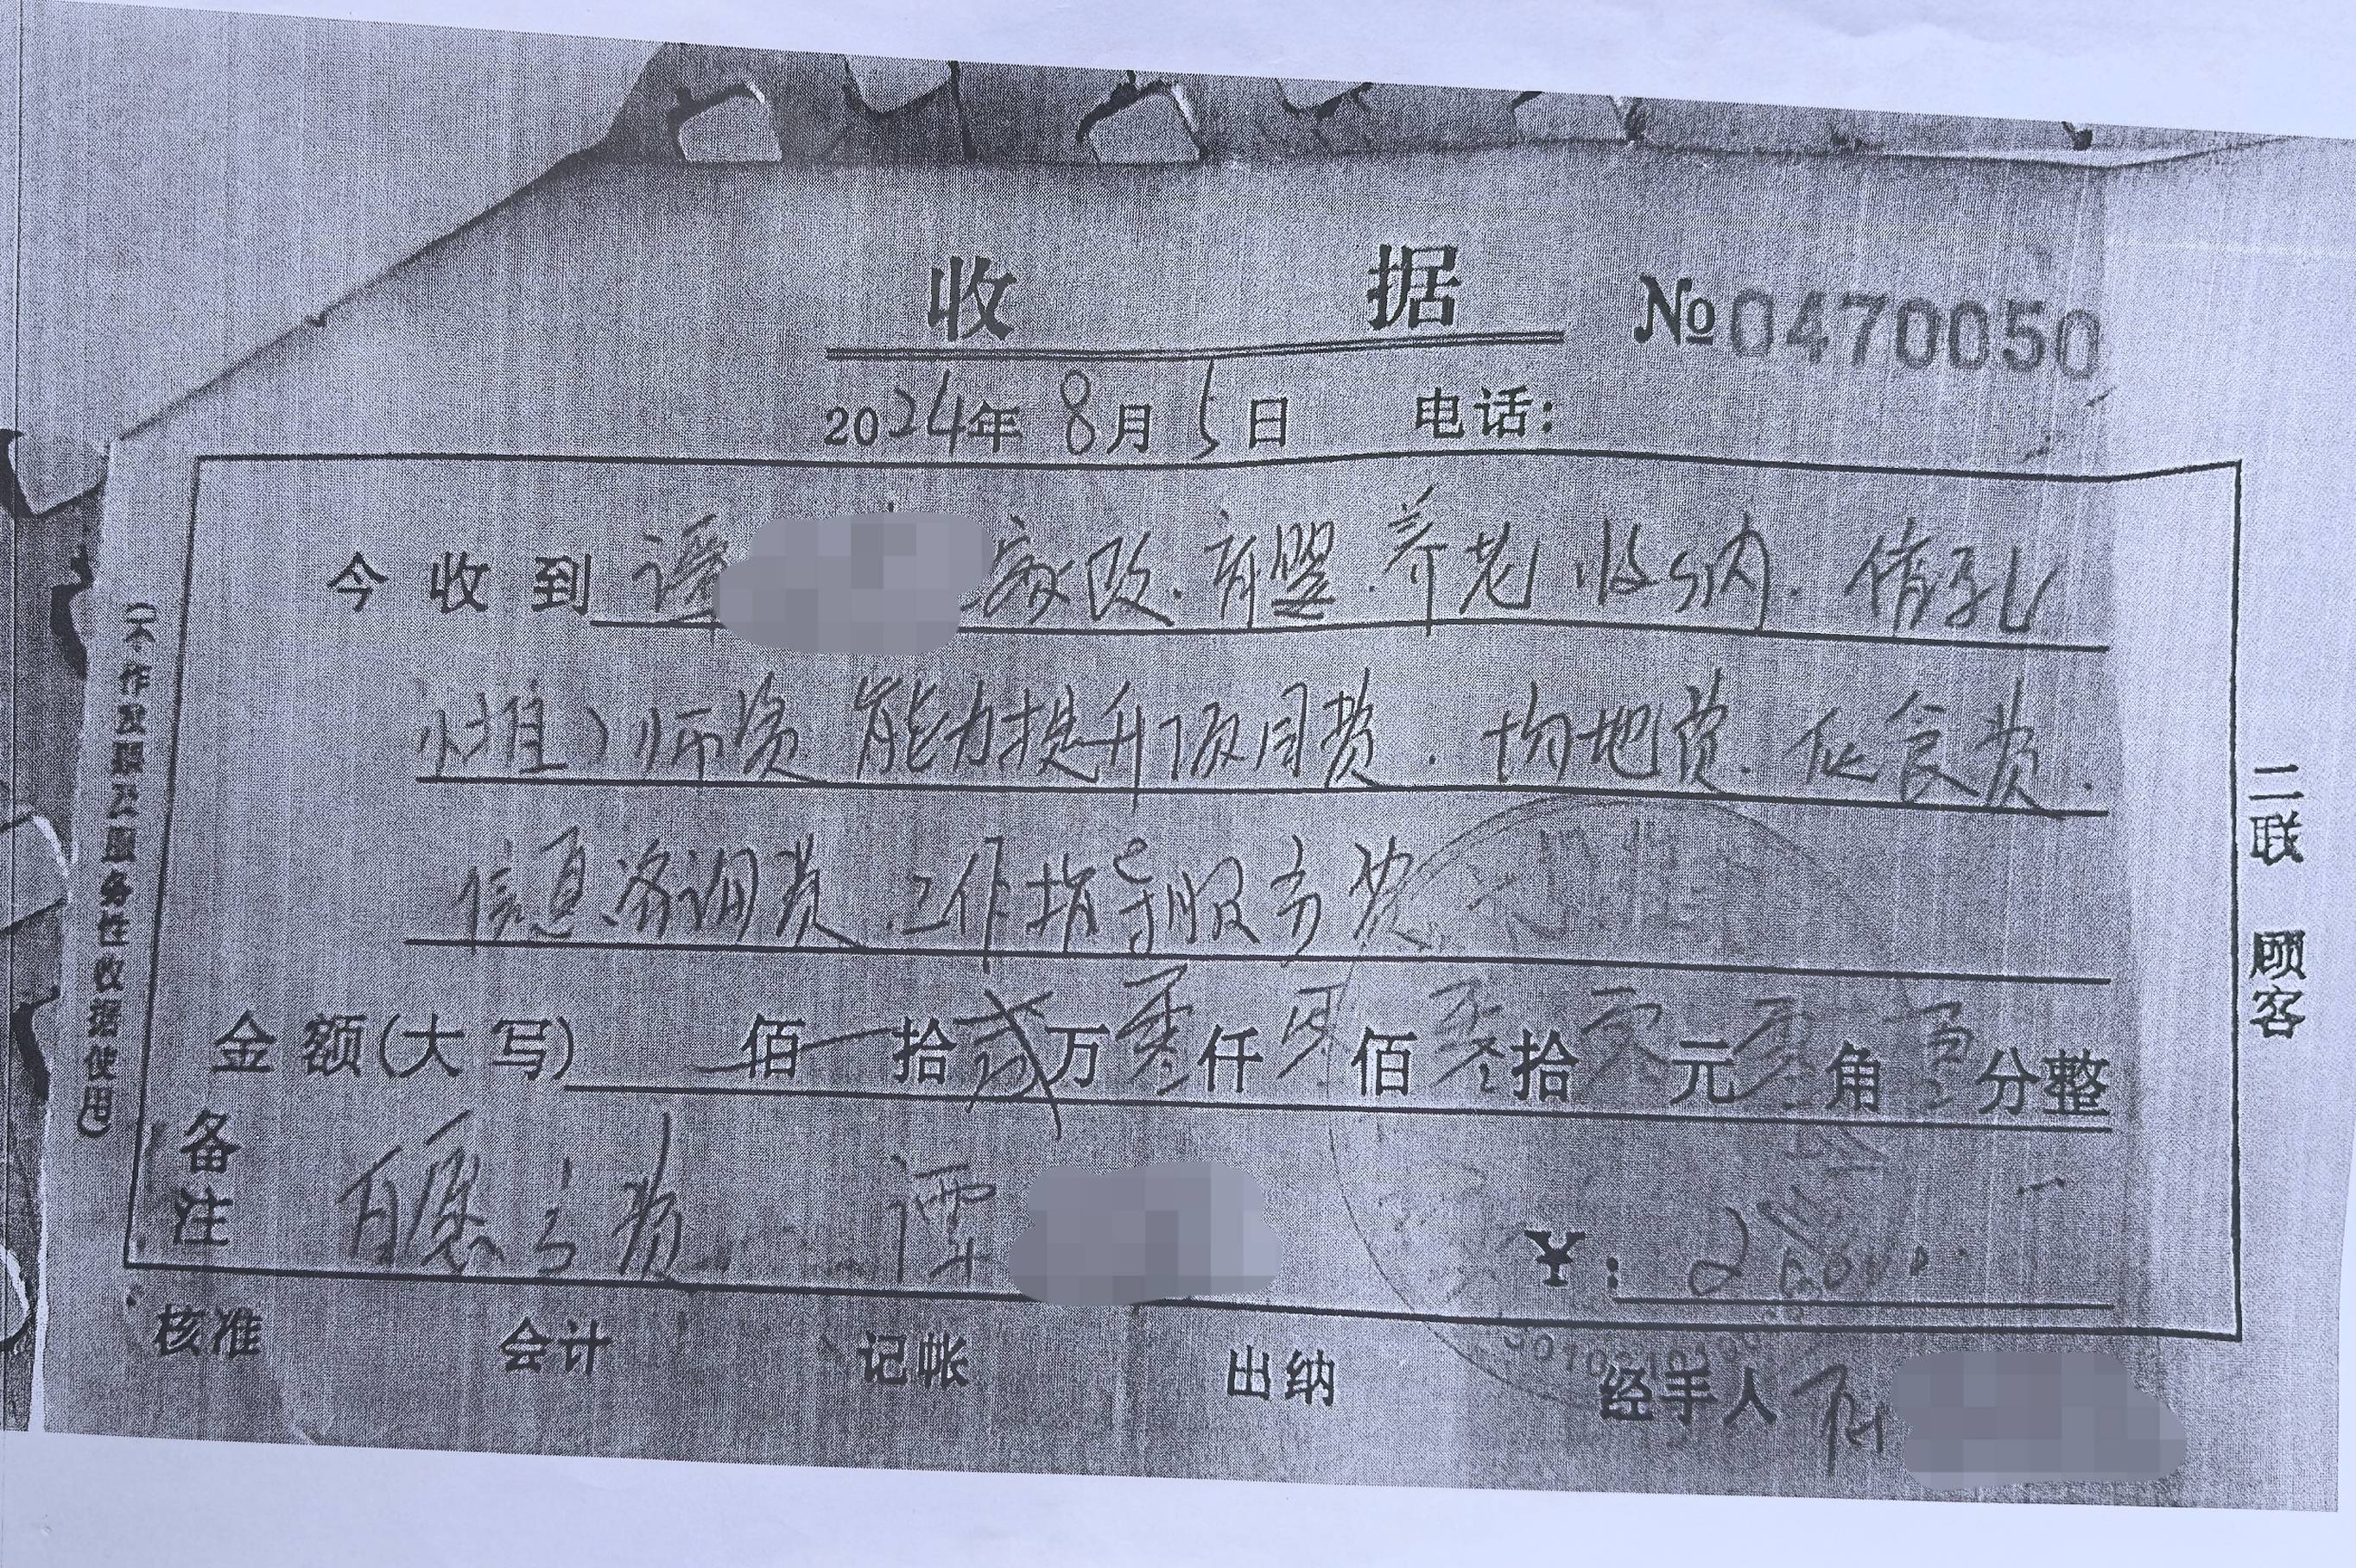 收 据 №0470050
2024年 8月 5日 电话:
今收到 谭 家政.育婴.养老.收纳.催乳
师资能力提升项目费.场地费.伙食费.
信息咨询费.工作指导服务费
金额(大写) 佰 拾 贰 万 零 仟 零 佰 零 拾 零 元 零 角 零 分整
备注 费 谭 ¥: 20000.
核准 会计 记帐 出纳 经手人
二联 顾客